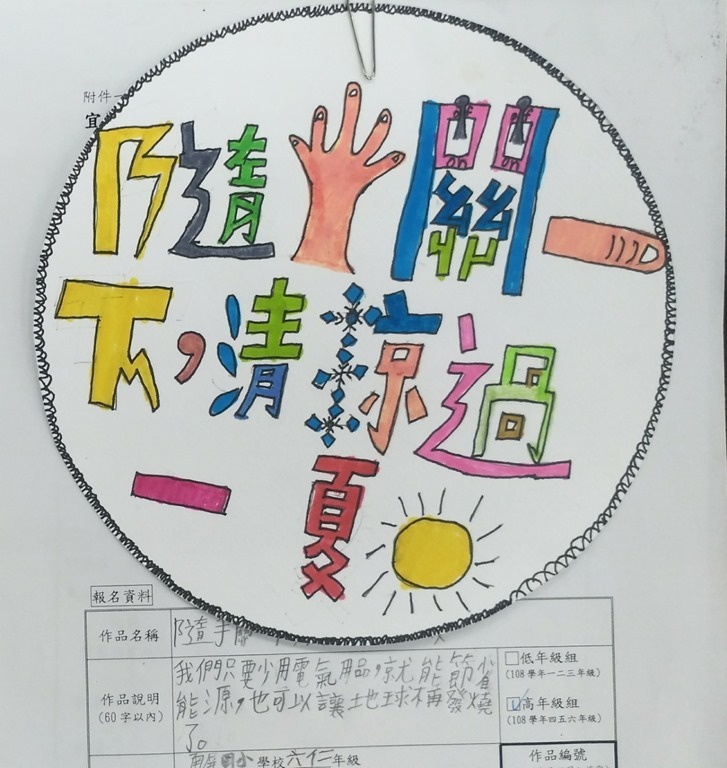 附件
宜
隨手關一
下,清涼過
一夏
報名資料
作品名稱 隨手關
作品說明
(60字以內)
我們只要少用電氣用品,就能節省
能源,也可以讓地球不再發燒
了。
□低年級組
(108學年一二三年級)
☑高年級組
(108學年四五六年級)
國小學校六仁年級
作品編號